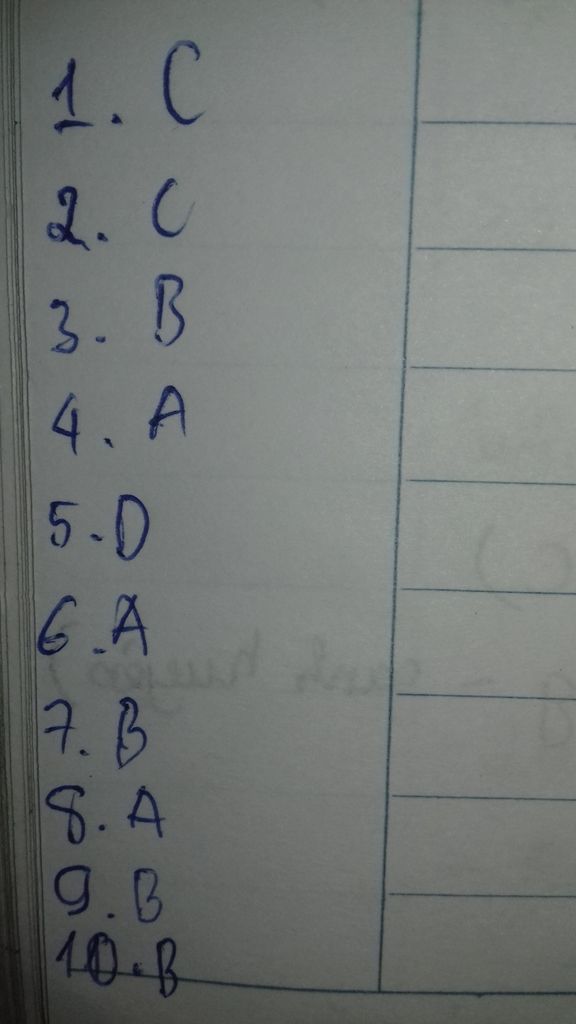 1. C
2. C
3. B
4. A
5. D
6. A
7. B
8. A
9. B
10. B